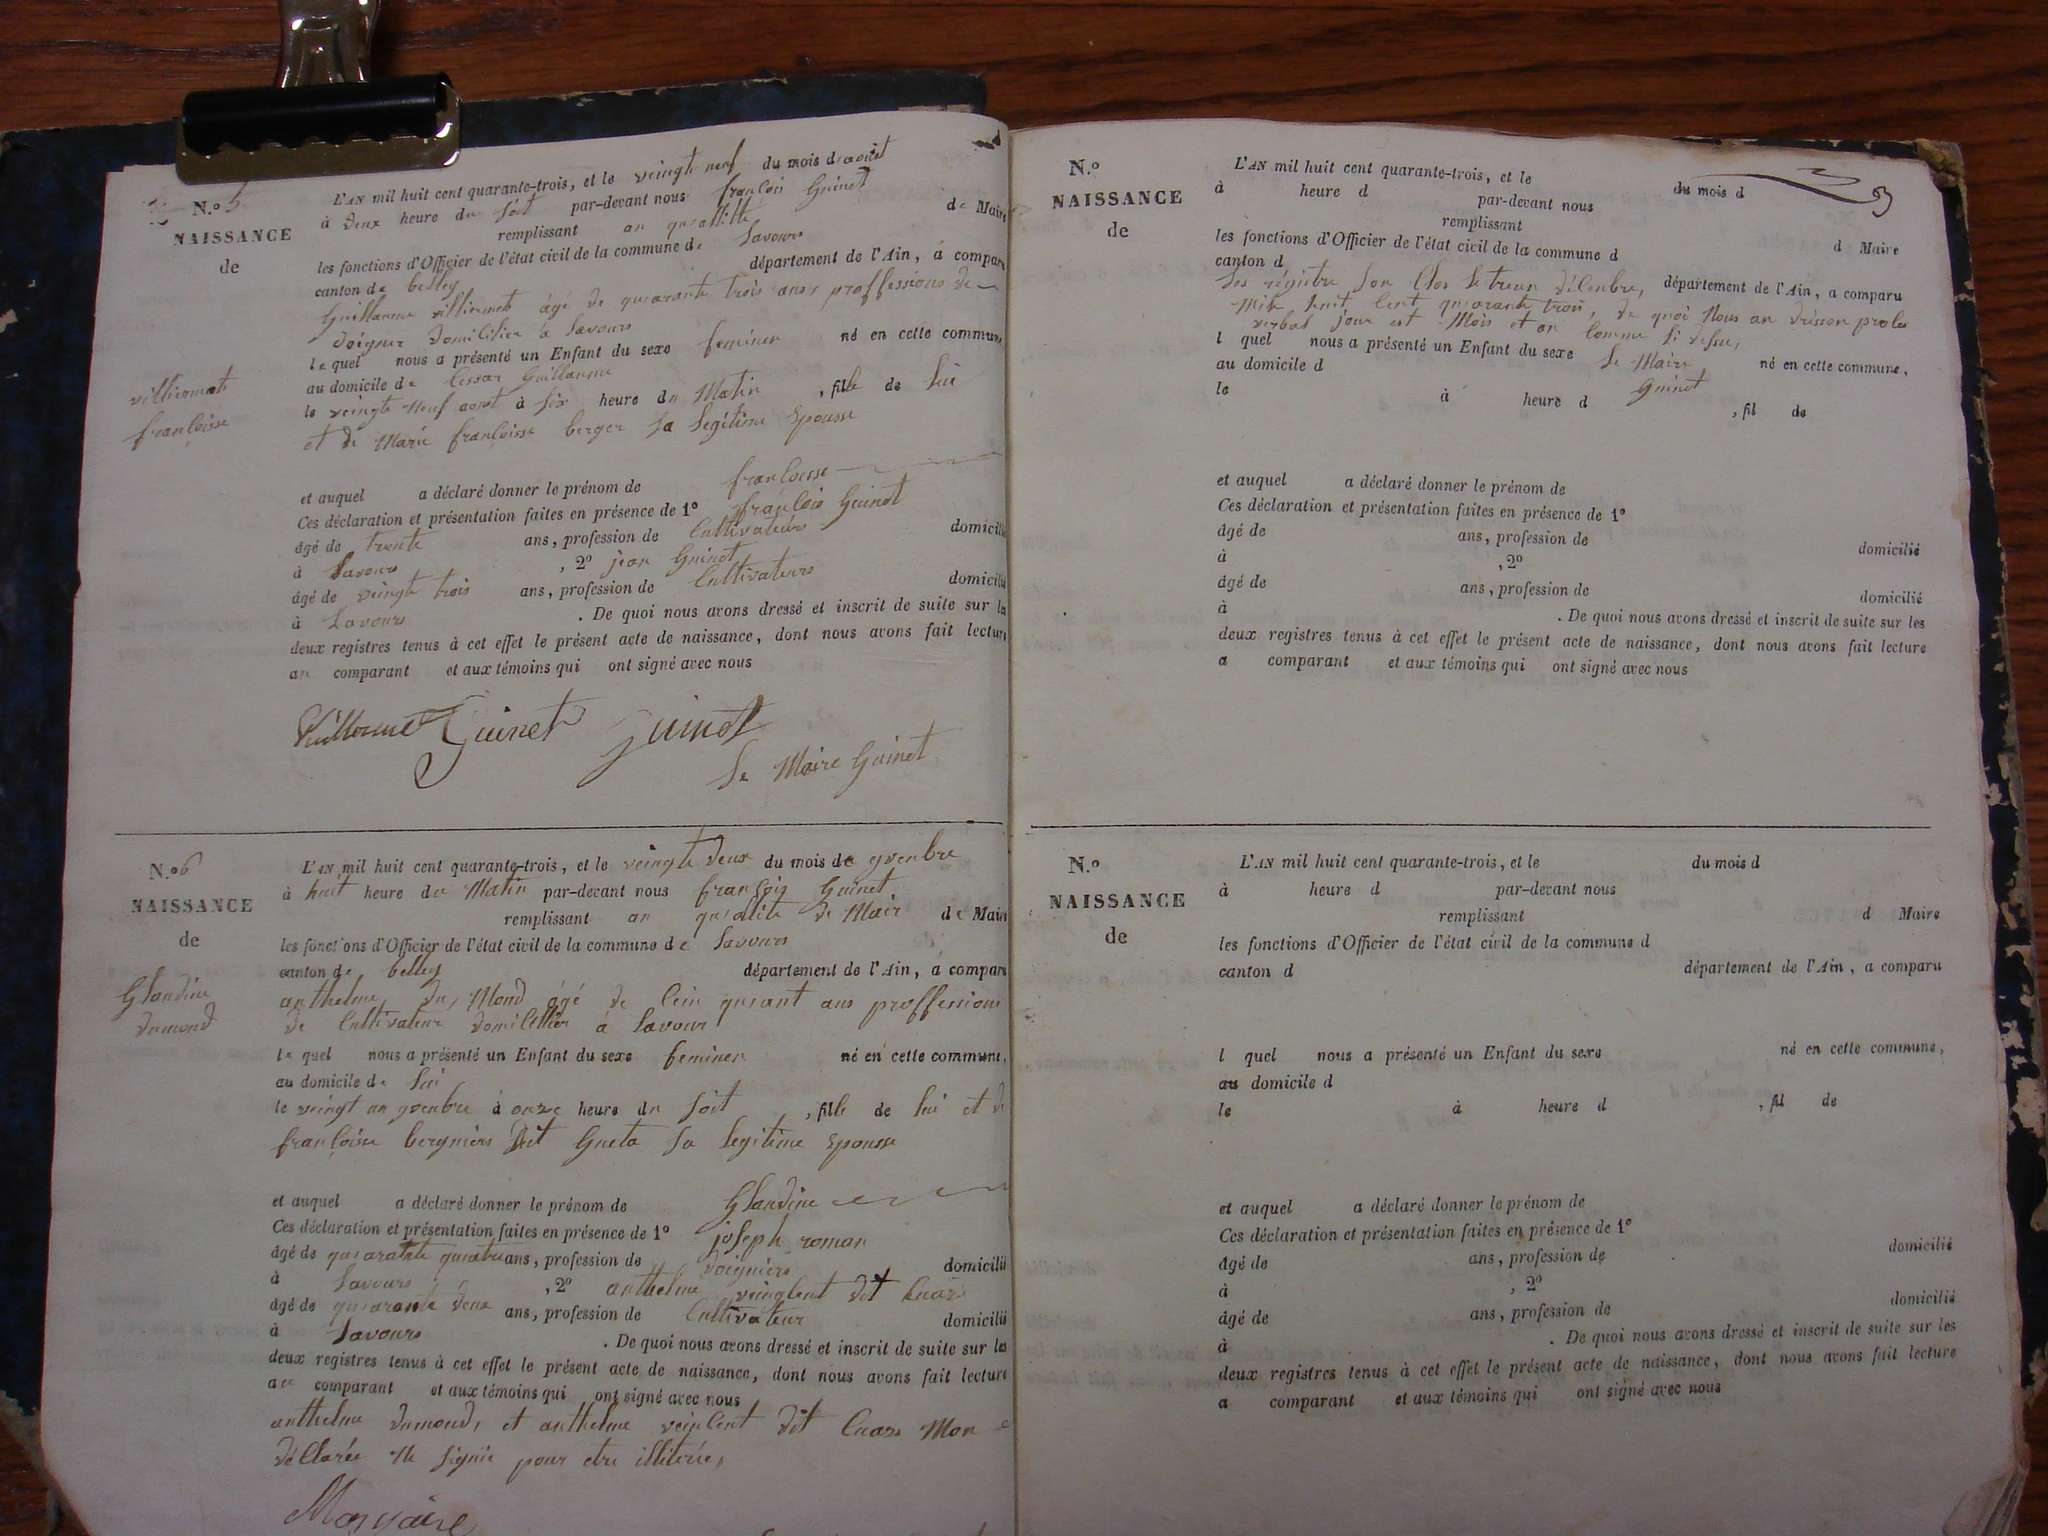 N.o 5
NAISSANCE
de
villiermet
françoisse
L'AN mil huit cent quarante-trois, et le veingte neuf du mois d aout
à deux heure du soit par-devant nous françois Guinet
remplissant an qualitté de Maire
les fonctions d'Officier de l'état civil de la commune de Lavours
canton de belley département de l'Ain, a comparu
Guillaume villiermet âgé de quarante trois ans proffessions de
domicilier à Lavours
le quel nous a présenté un Enfant du sexe feminen né en cette commune
au domicile de Guillaume
le veingte neuf aout à six heure du Matin , fille de lui
et de Marie françoisse berger sa legitime Epousse
et auquel a déclaré donner le prénom de françoisse
Ces déclaration et présentation faites en présence de 1º françois Guinet
âgé de trente ans, profession de Cultivateurs domicilié
à Lavours , 2º jean Guinet
âgé de veingte trois ans, profession de Cultivateurs domicilié
à Lavours . De quoi nous avons dressé et inscrit de suite sur les
deux registres tenus à cet effet le présent acte de naissance, dont nous avons fait lecture
au comparant et aux témoins qui ont signé avec nous
Guinet Guinet
Le Maire Guinet
N.o 6
NAISSANCE
de
Glandine
dumond
L'AN mil huit cent quarante-trois, et le veingte deux du mois de 9venbre
à huit heure du Matin par-devant nous françois Guinet
remplissant an qualité de Mair de Maire
les fonctions d'Officier de l'état civil de la commune de Lavours
canton de belley département de l'Ain, a comparu
anthelme du Mond âgé de cein quiant ans proffessions
de Cultivateur domicillier à Lavour
le quel nous a présenté un Enfant du sexe feminen né en cette commune,
au domicile de lui
le veingt un 9venbre à onze heure du soit , fille de lui et de
françoise bergniers dit Gueta sa legitime Epousse
et auquel a déclaré donner le prénom de Glandine
Ces déclaration et présentation faites en présence de 1º joseph roman
âgé de quarante quatre ans, profession de domicilié
à Lavours , 2º anthelme dit
âgé de quarante deux ans, profession de Cultivateur domicilié
à Lavours . De quoi nous avons dressé et inscrit de suite sur les
deux registres tenus à cet effet le présent acte de naissance, dont nous avons fait lecture
au comparant et aux témoins qui ont signé avec nous
anthelme dumond, et anthelme veinlent dit Cuaz Mon
déclarée Ne signié pour etre illiterée,
N.o
NAISSANCE
de
L'AN mil huit cent quarante-trois, et le du mois d
à heure d par-devant nous
remplissant d Maire
les fonctions d'Officier de l'état civil de la commune d
canton d département de l'Ain, a comparu
Les régistre son Clos le treun décenbre,
Mile huit Cent quarante trois, de quoi Nous an drèsson procès
verbal jour est Mois et an Comme si dessu,
l quel nous a présenté un Enfant du sexe né en cette commune,
Le Maire
au domicile d
Guinet
le à heure d , fil de
et auquel a déclaré donner le prénom de
Ces déclaration et présentation faites en présence de 1º
âgé de ans, profession de domicilié
à , 2º
âgé de ans, profession de domicilié
à . De quoi nous avons dressé et inscrit de suite sur les
deux registres tenus à cet effet le présent acte de naissance, dont nous avons fait lecture
a comparant et aux témoins qui ont signé avec nous
N.o
NAISSANCE
de
L'AN mil huit cent quarante-trois, et le du mois d
à heure d par-devant nous
remplissant d Maire
les fonctions d'Officier de l'état civil de la commune d
canton d département de l'Ain, a comparu
l quel nous a présenté un Enfant du sexe né en cette commune,
au domicile d
le à heure d , fil de
et auquel a déclaré donner le prénom de
Ces déclaration et présentation faites en présence de 1º
âgé de ans, profession de domicilié
à , 2º
âgé de ans, profession de domicilié
à . De quoi nous avons dressé et inscrit de suite sur les
deux registres tenus à cet effet le présent acte de naissance, dont nous avons fait lecture
a comparant et aux témoins qui ont signé avec nous